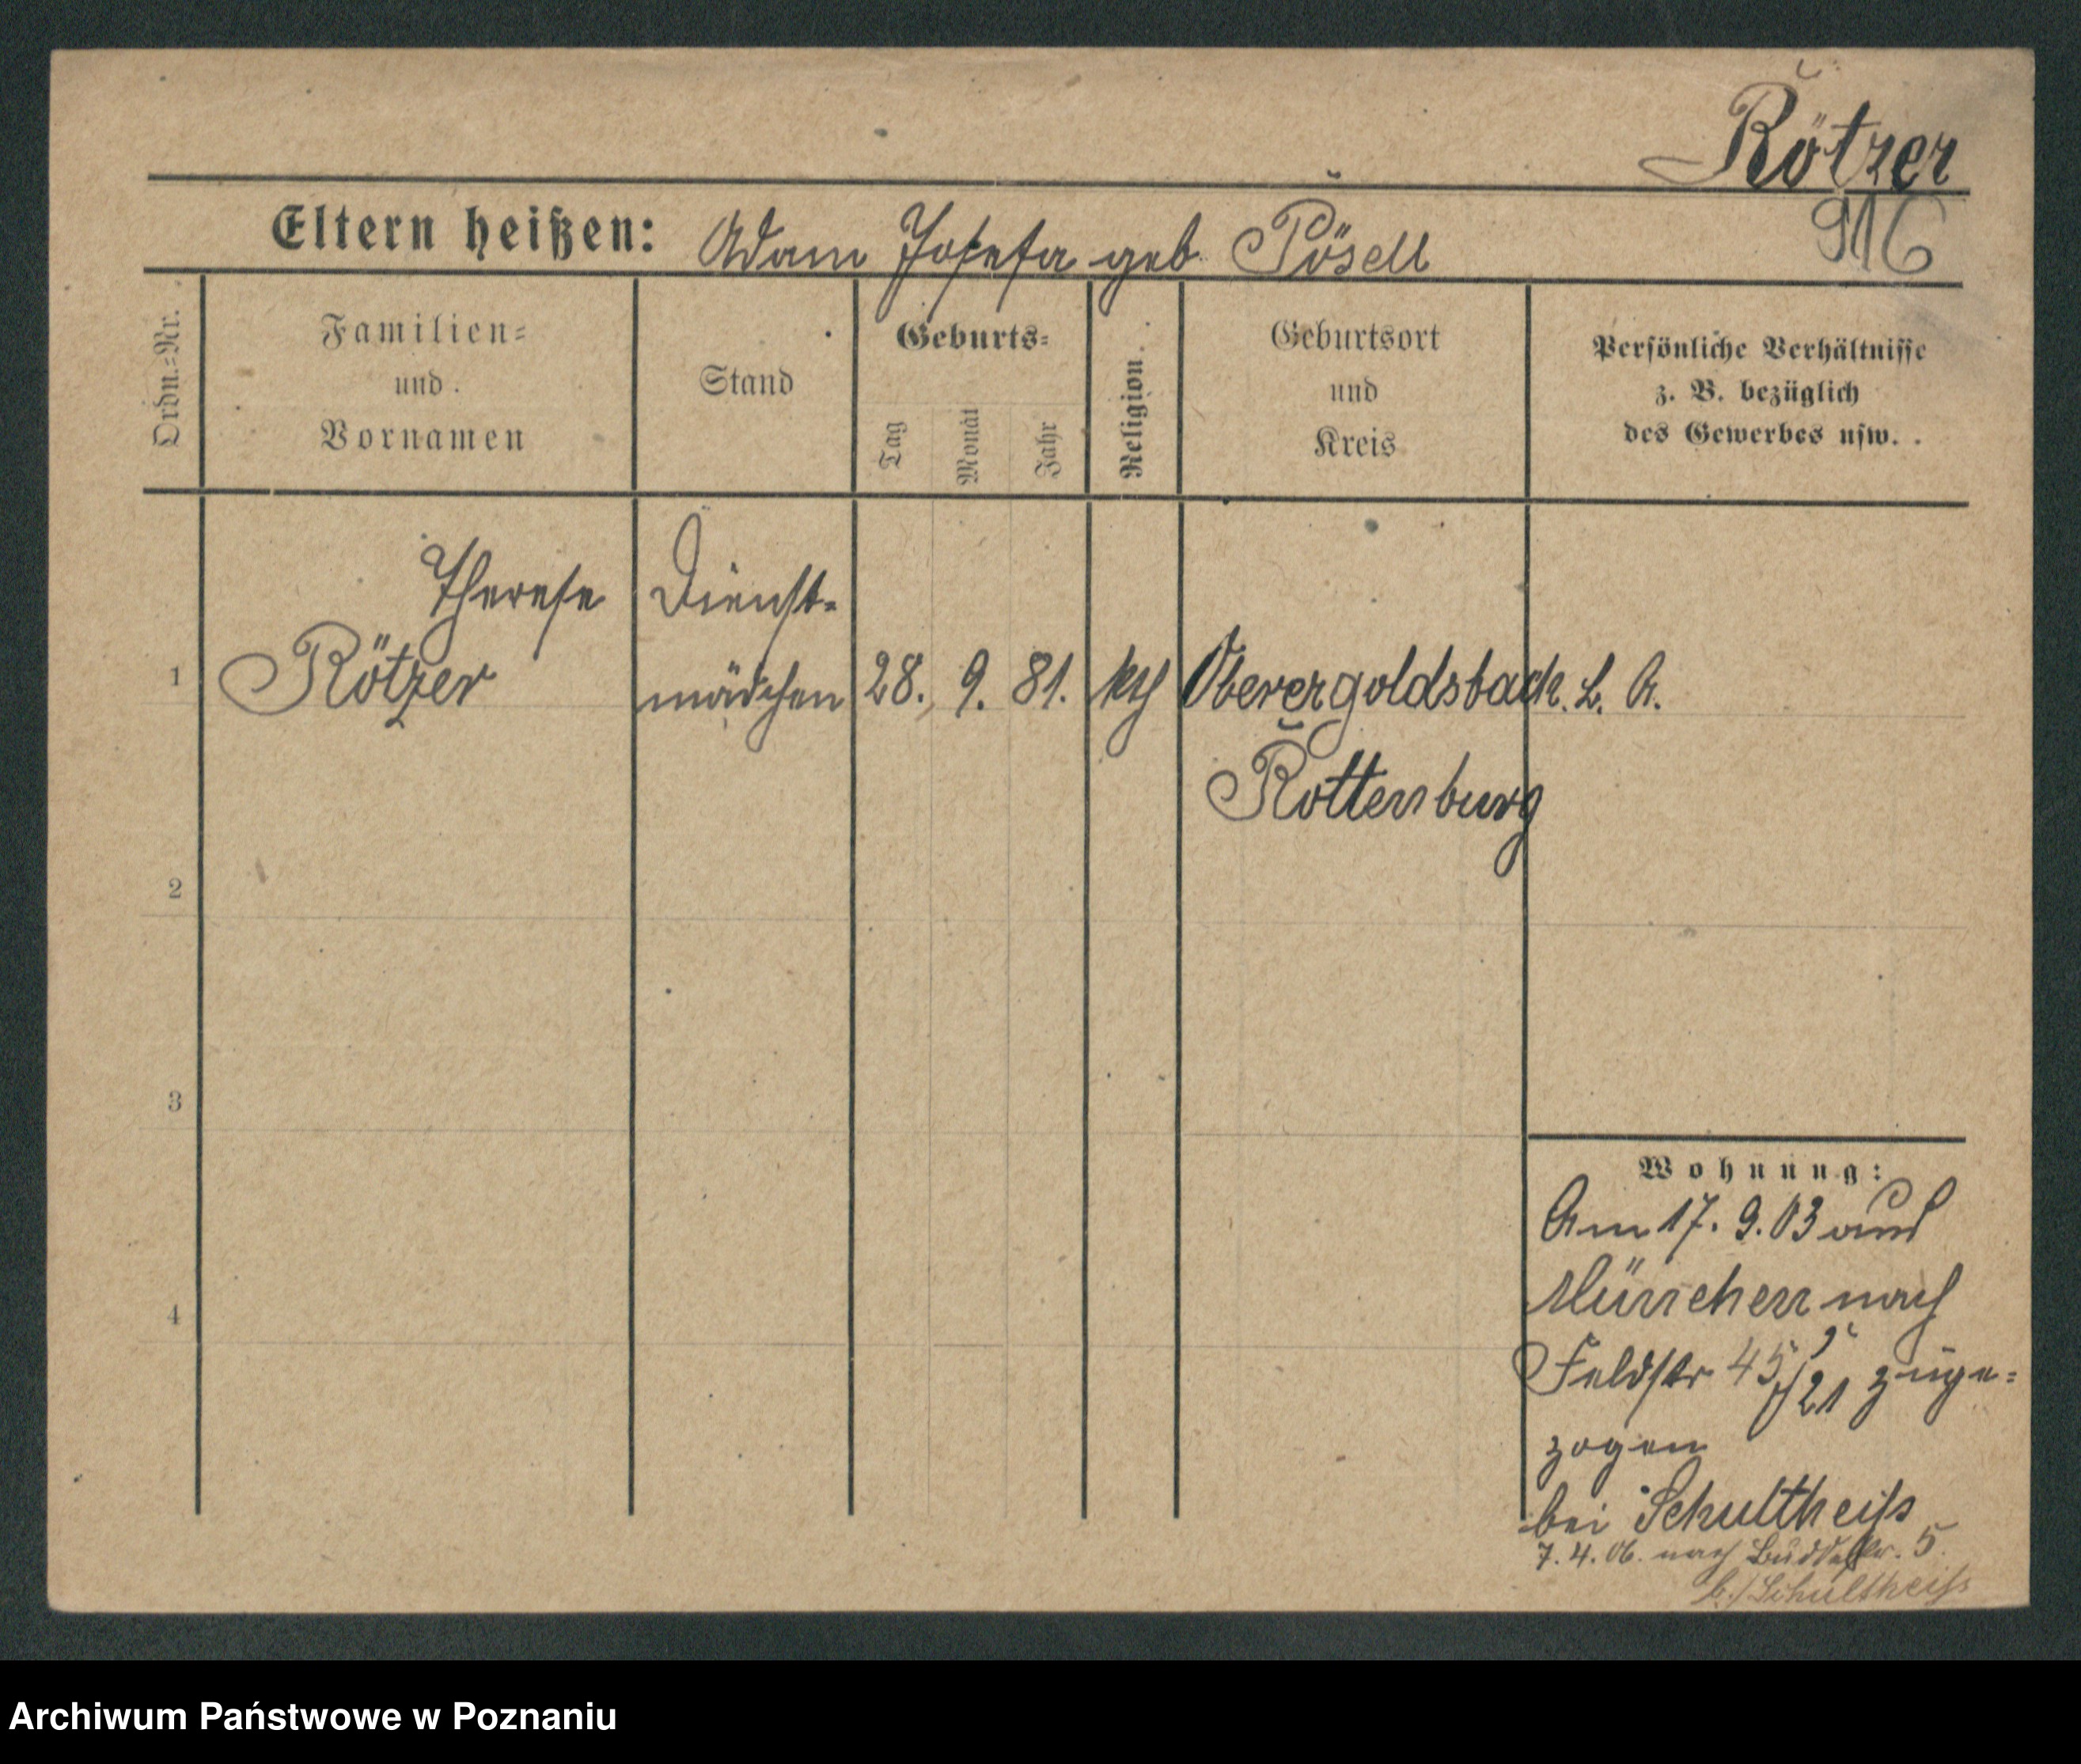 Rötzer
916
Eltern heißen: Adam Josefa geb. Pösell
Ordn.-Nr.
Familien-
und
Vornamen
Stand
Geburts-
Tag
Monat
Jahr
Religion.
Geburtsort
und
Kreis
Persönliche Verhältnisse
z. B. bezüglich
des Gewerbes usw.
Therese
Rötzer
Dienst-
mädchen
1
28. 9. 81.
kth
Oberergoldsbach. L. A.
Rottenburg
2
3
4
Wohnung:
Am 17. 9. 03 aus
München nach
Feldstr 45/21 zuge-
zogen
bei Schultheiss
7. 4. 06. nach Buddestr. 5.
b./Schultheiss
Archiwum Państwowe w Poznaniu